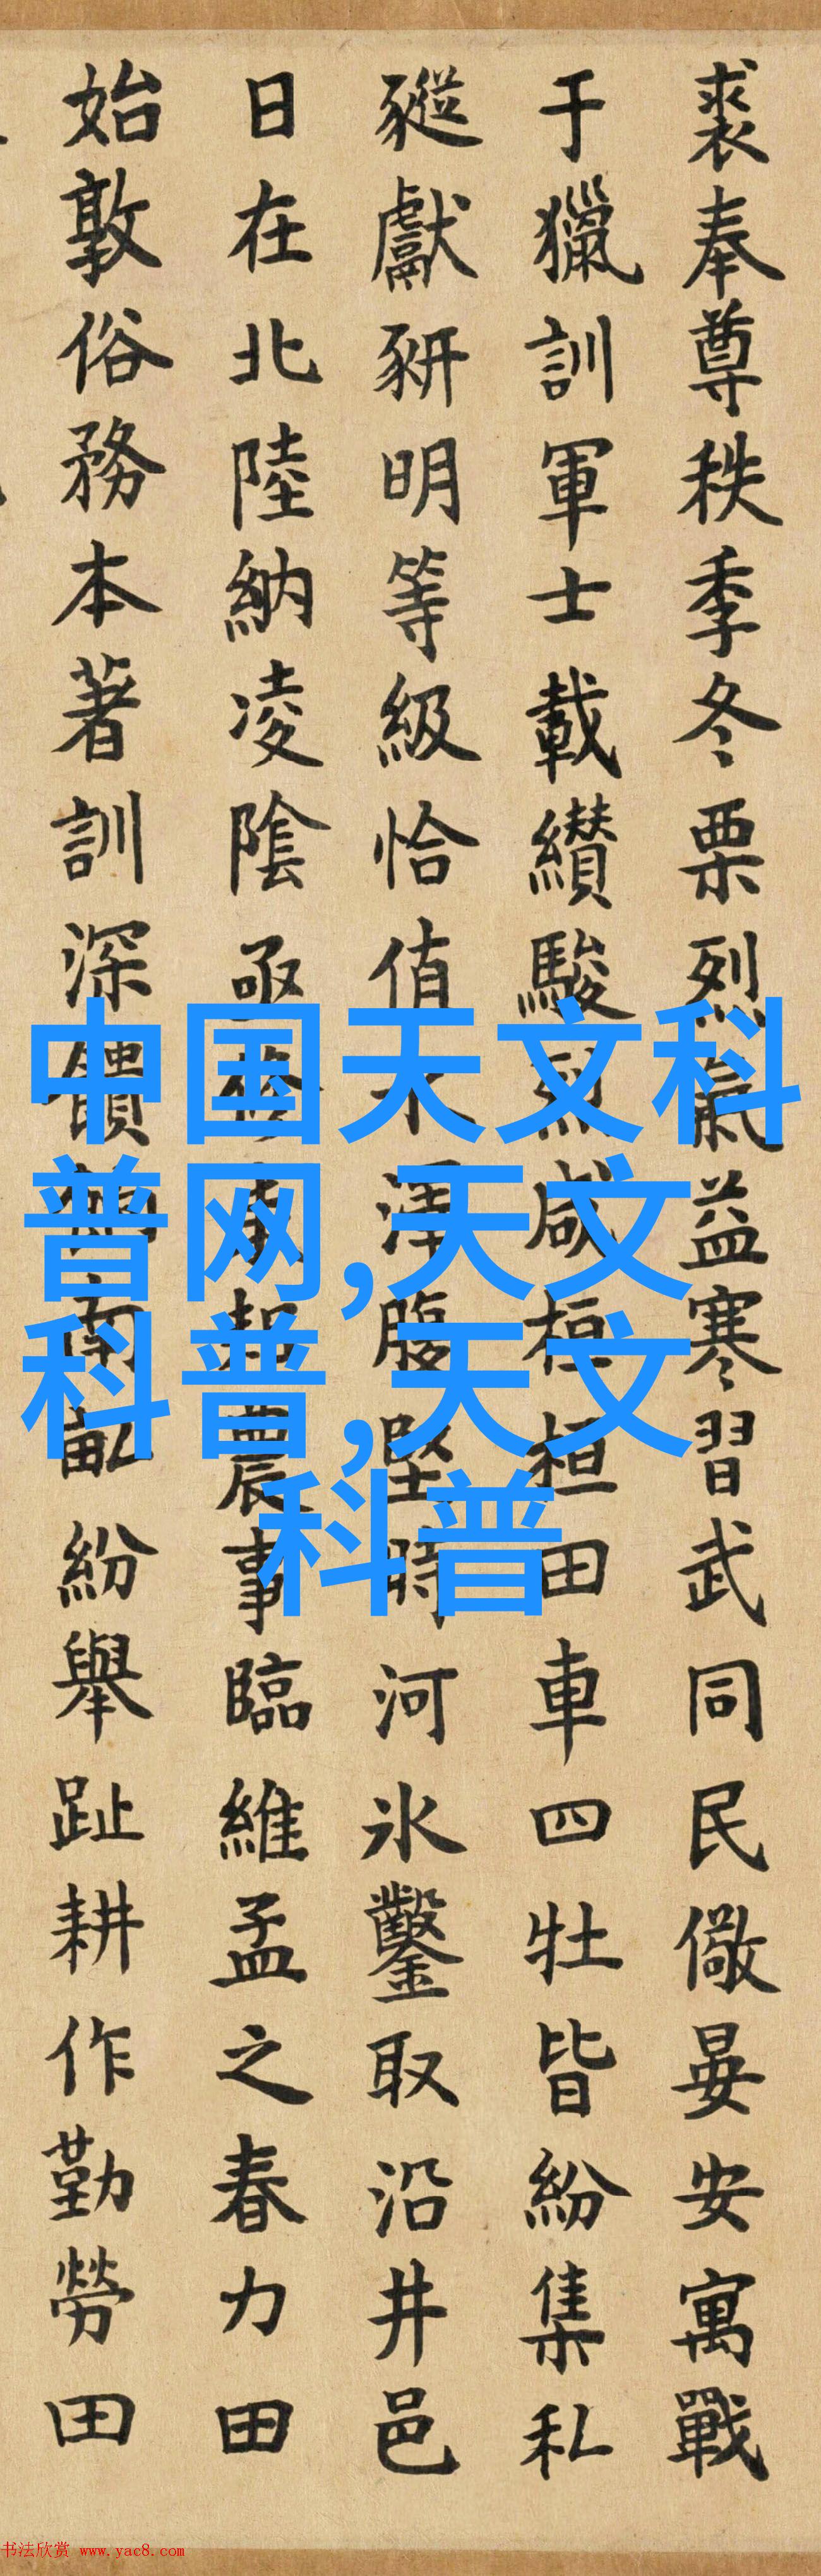 裘奉尊秩季冬栗烈氣益寒習武同民儆晏安寓戰
于獵訓軍士載纘駿烈咸桓桓田車四牡皆紛集私
豵獻豜明等級恰值水澤腹堅時河氷鑿取沿井邑
日在北陸納凌陰亟農事臨維孟之春力田
始敦俗務本著訓深饋南畝紛舉趾耕作勤勞田
中国天文科
普网,天文
科普,天文
科普
书法欣赏 www.yac8.com